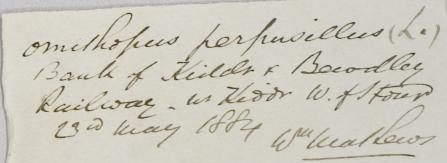 Ornithopus perpusillus (L.)
Bank of Kiddr & Bewdley
Railway - nr Kiddr W. of Stour
23rd May 1884
Wm Mathews